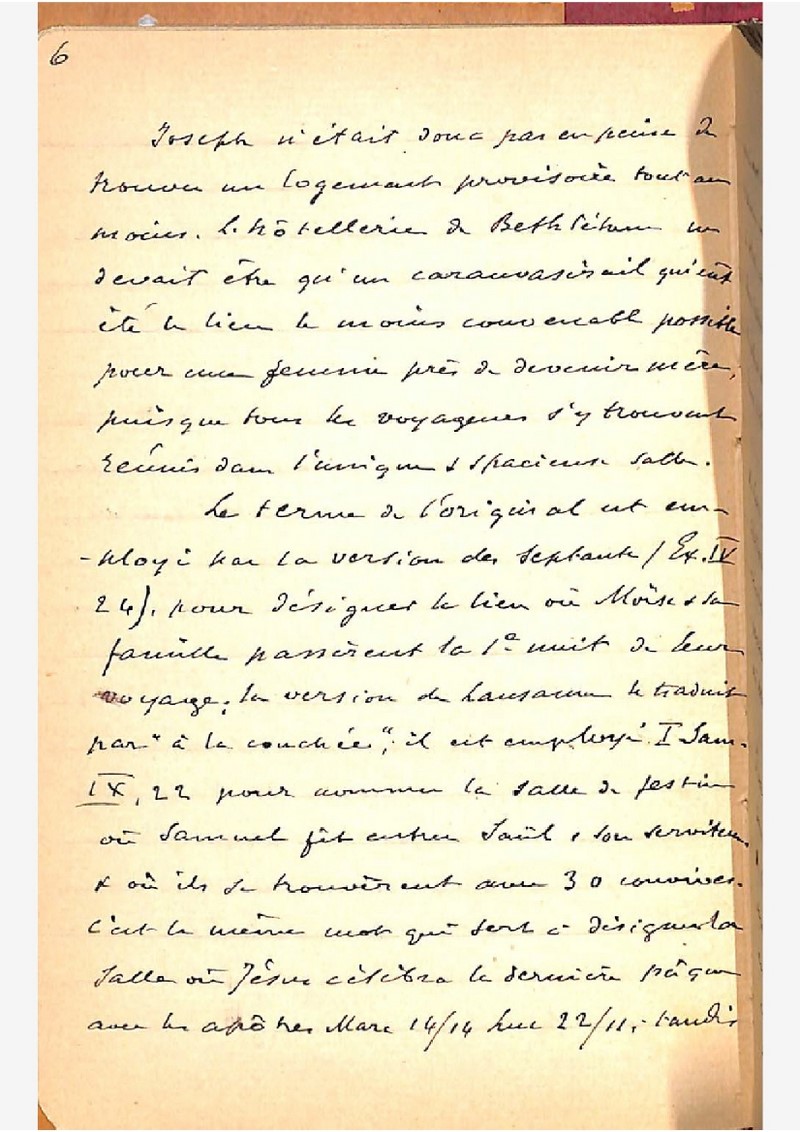 6
Joseph n'était donc pas en peine de
trouver un logement provisoire tout au
moins. L'hôtellerie de Bethléhem ne
devait être qu'un caravansérail qui eût
été le lieu le moins convenable possible
pour une femme près de devenir mère,
puisque tous les voyageurs s'y trouvent
réunis dans l'unique & spacieuse salle.
Le terme de l'original est em-
-ployé par la version des Septante (Ex. IV
24), pour désigner le lieu où Moïse & sa
famille passèrent la 1e nuit de leur
voyage; la version de Lausanne le traduit
par "à la couchée"; il est employé I Sam.
IX, 22 pour nommer la salle de festin
où Samuel fit entrer Saül & son serviteur
& où ils se trouvèrent avec 30 convives.
C'est le même mot qui sert à désigner la
salle où Jésus célébra la dernière pâque
avec les apôtres Marc 14/14 Luc 22/11, tandis